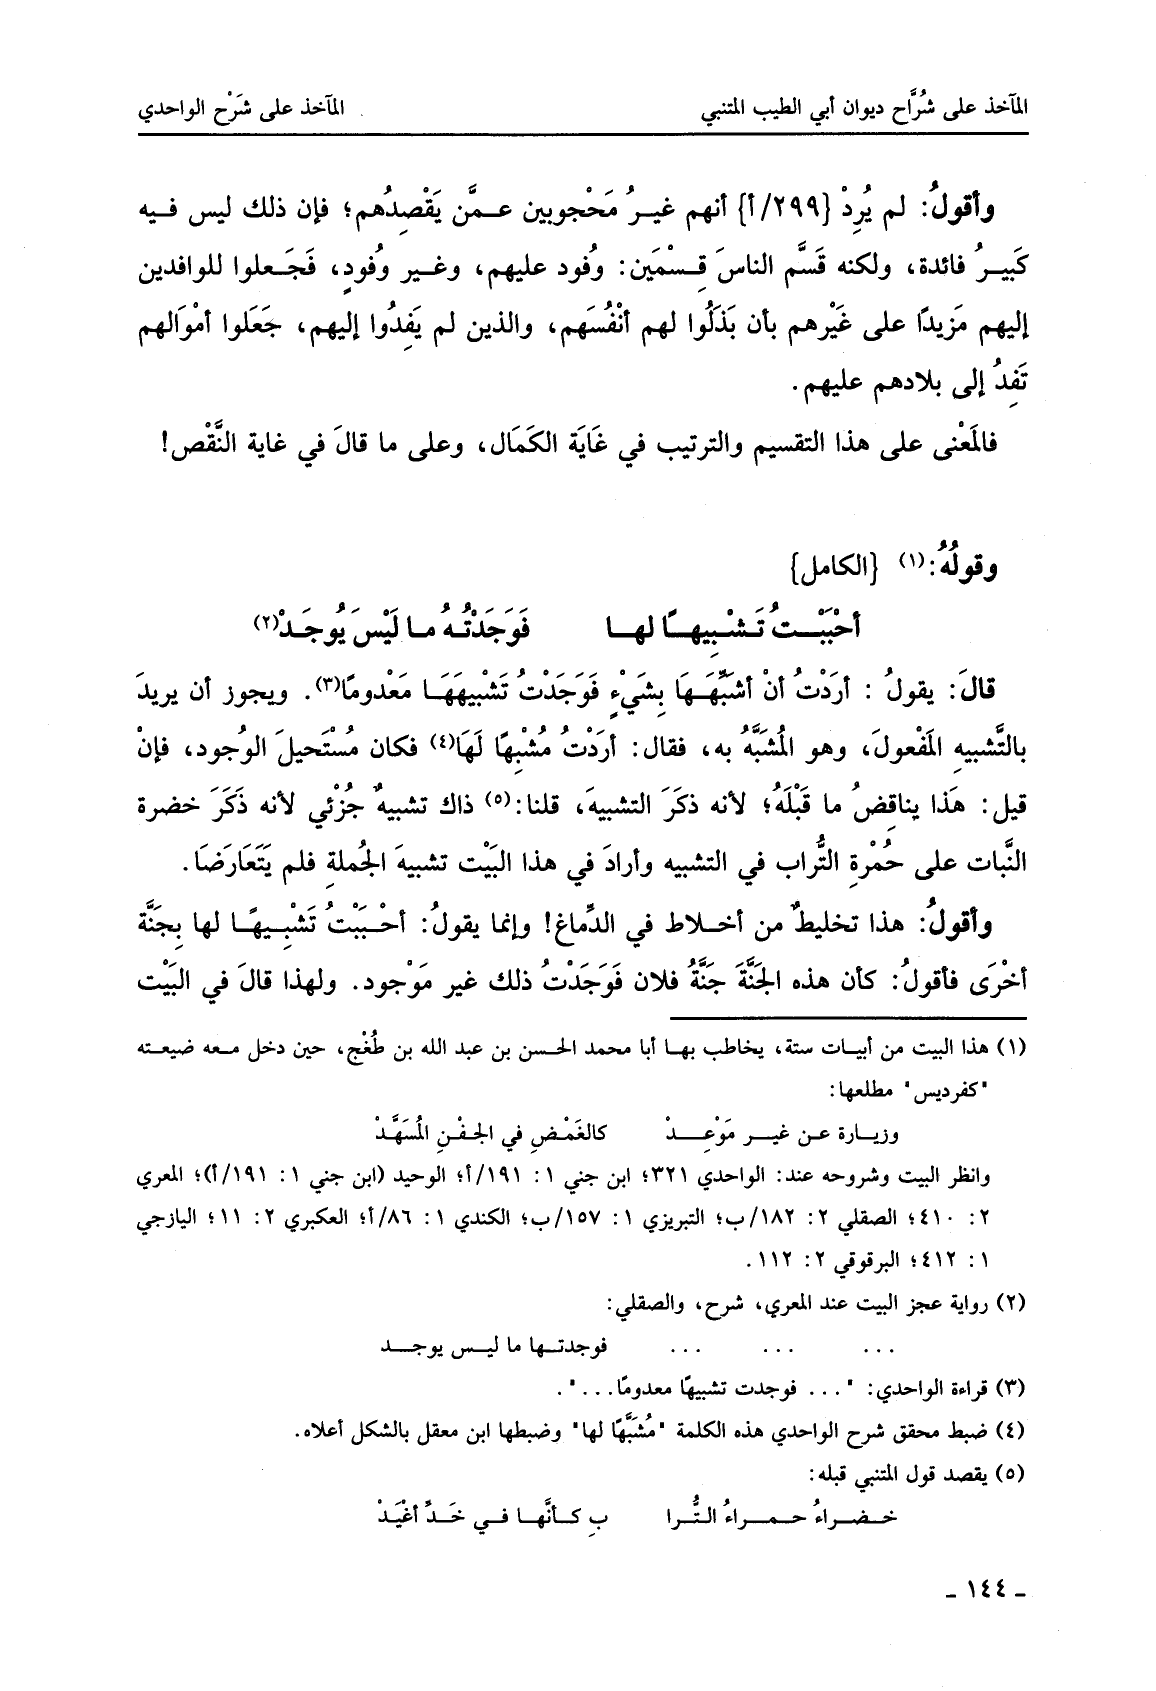 المآخذ على شُرَّاح ديوان أبي الطيب المتنبي المآخذ على شَرْح الواحدي
وأقولُ: لم يُرِدْ {٢٩٩/أ} أنهم غيـرُ مَحْجوبين عـمَّن يَقْصِدُهم؛ فإن ذلك ليس فـيه
كَبيـرُ فائدة، ولكنه قَسَّم الناسَ قِـسْمَين: وُفود عليهم، وغـير وُفودٍ، فَجَـعلوا للوافدين
إليهم مَزيدًا على غَيْرهم بأن بَذَلُوا لهم أنْفُسَهم، والذين لم يَفِدُوا إليهم، جَعَلوا أموَالهم
تَفِدُ إلى بلادهم عليهم.
فالمَعْنى على هذا التقسيم والترتيب في غَايَة الكَمَال، وعلى ما قالَ في غاية النَّقْص!
وقولُهُ:(١) {الكامل}
أحْبَبْــتُ تَـشْـبِيهـًا لهـا فَوَجَدْتُـهُ مـا لَيْسَ يُوجَـدْ(٢)
قالَ: يقولُ : أرَدْتُ أنْ أشَبِّهَـهَا بِشَيْءٍ فَوَجَدْتُ تَشْبيهَهَـا مَعْدومًا(٣). ويجوز أن يريدَ
بالتَّشبيهِ المَفْعولَ، وهو المُشَبَّهُ به، فقال: أرَدْتُ مُشْبِهًا لَهَا(٤) فكان مُسْتَحيلَ الوُجود، فإنْ
قيل: هَذا يناقضُ ما قَبْلَهُ؛ لأنه ذكَرَ التشبيهَ، قلنا:(٥) ذاك تشبيهٌ جُزْئي لأنه ذَكَرَ خضرة
النَّبات على حُمْرةِ التُّراب في التشبيه وأرادَ في هذا البَيْت تشبيهَ الجُملةِ فلم يَتَعَارَضَا.
وأقولُ: هذا تخليطٌ من أخـلاط في الدِّماغ! وإنما يقولُ: أحْـبَبْتُ تَشْبِـيهًـا لها بِجَنَّة
أخْرَى فأقولُ: كأن هذه الجَنَّةَ جَنَّةُ فلان فَوَجَدْتُ ذلك غير مَوْجود. ولهذا قالَ في البَيْت
(١) هذا البيت من أبيـات ستة، يخاطب بهـا أبا محمد الحـسن بن عبد الله بن طُغْج، حين دخل مـعه ضيعـته
"كفرديس" مطلعها:
وزيــارة عـن غيـــر مَوْعِــــدْ كالغَمْـضِ في الجَـفْـنِ المُسَهَّـدْ
وانظر البيت وشروحه عند: الواحدي ٣٢١؛ ابن جني ١: ١٩١/أ؛ الوحيد (ابن جني ١: ١٩١/أ)؛ المعري
٢: ٤١٠؛ الصقلي ٢: ١٨٢/ب؛ التبريزي ١: ١٥٧/ب؛ الكندي ١: ٨٦/أ؛ العكبري ٢: ١١؛ اليازجي
١: ٤١٢؛ البرقوقي ٢: ١١٢.
(٢) رواية عجز البيت عند المعري، شرح، والصقلي:
... ... ... فوجدتـها ما ليـس يوجــد
(٣) قراءة الواحدي: "... فوجدت تشبيهًا معدومًا...".
(٤) ضبط محقق شرح الواحدي هذه الكلمة "مُشَبَّهًا لها" وضبطها ابن معقل بالشكل أعلاه.
(٥) يقصد قول المتنبي قبله:
خـضـراءُ حـمـراءُ التُّـرا بِ كـأنَّهـا فـي خَـدِّ أغْيَـدْ
ـ ١٤٤ ـ